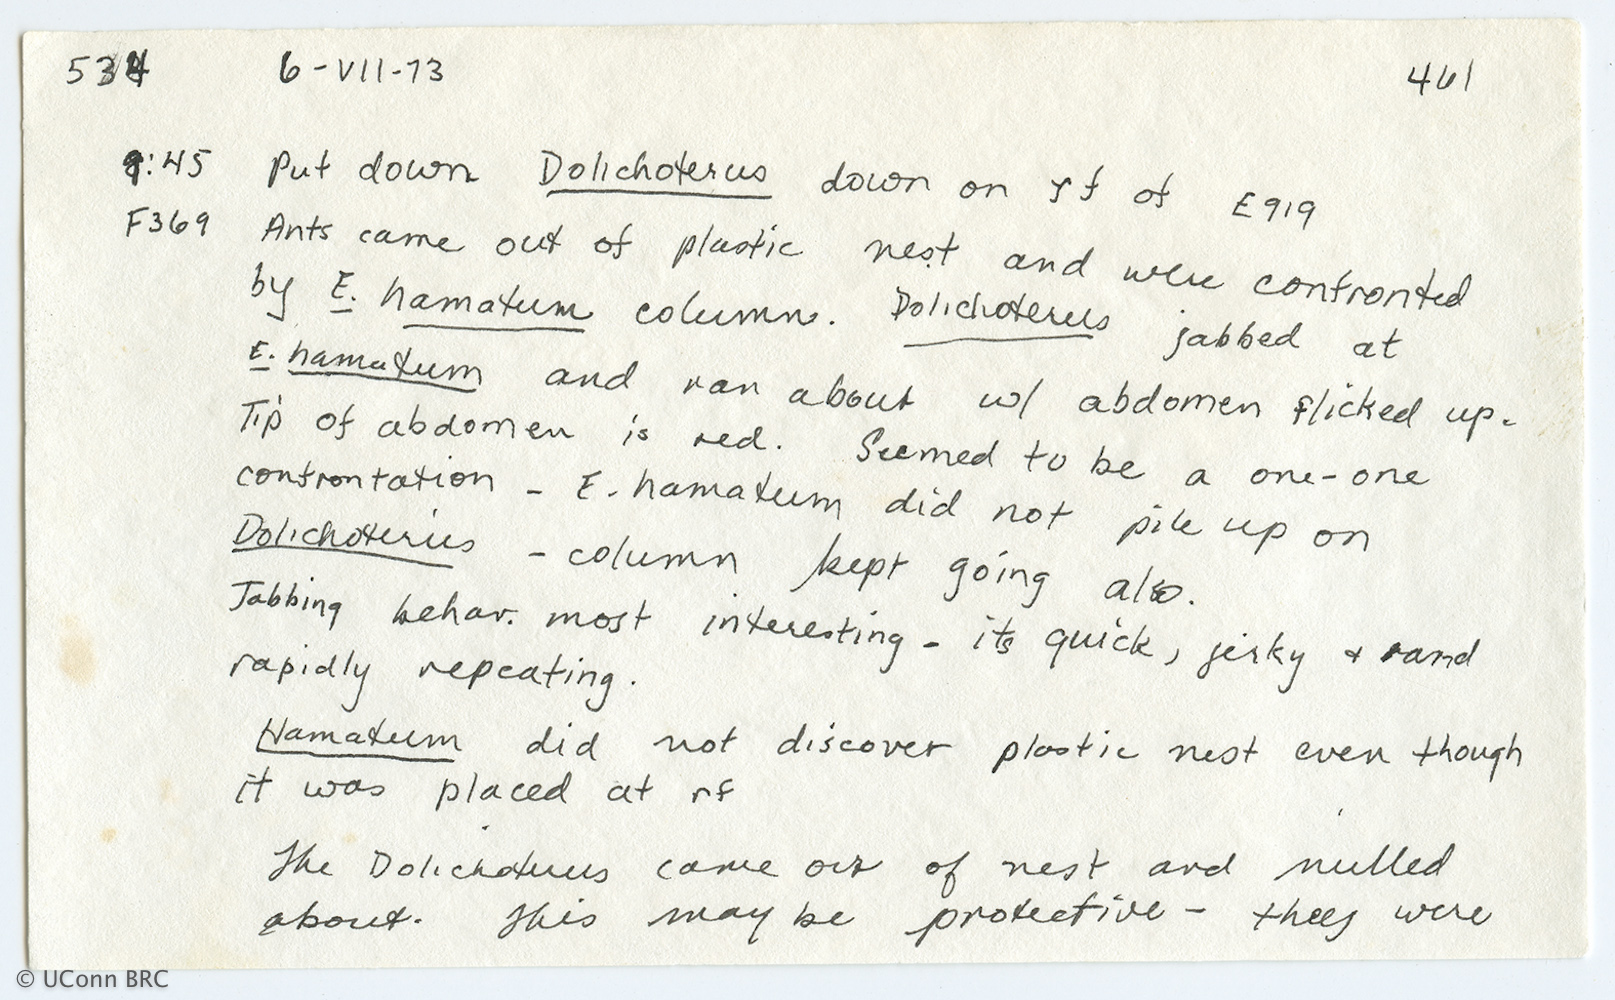 534 6-VII-73 461
9:45 Put down Dolichoterus down on rf of E919
F369 Ants came out of plastic nest and were confronted
by E. hamatum column. Dolichoterus jabbed at
E. hamatum and ran about w/ abdomen flicked up.
Tip of abdomen is red. Seemed to be a one-one
confrontation - E. hamatum did not pile up on
Dolichoterus - column kept going also.
Jabbing behav. most interesting - its quick, jerky + and
rapidly repeating.
Hamatum did not discover plastic nest even though
it was placed at rf
The Dolichoterus came out of nest and milled
about. This may be protective - they were
© UConn BRC